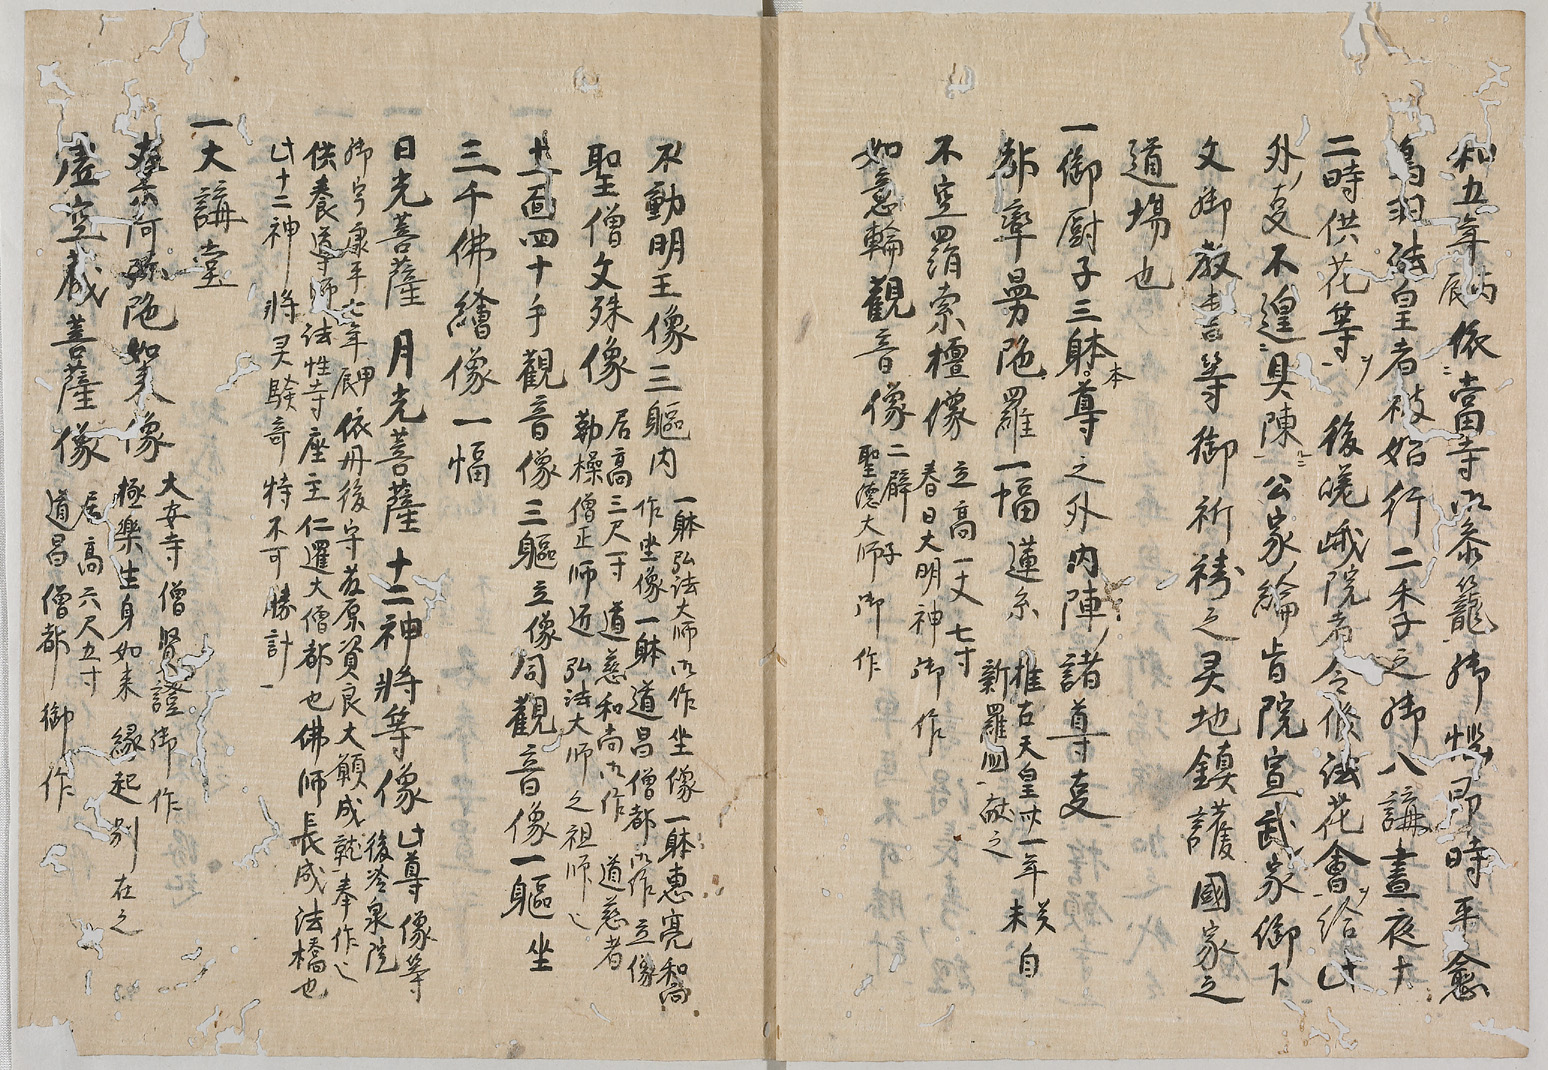 和五年丙辰依當寺御参籠御惱即時平愈
鳥羽法皇者被始行二季之御八講晝夜十
二時供花等後嵯峨院者令修法花會給此
外支不遑具陳公家綸旨院宣武家御下
文御教書等御祈祷之灵地鎮護國家之
道場也
一御厨子三躰本尊之外内陣諸尊支
都率曼陁羅一幅蓮糸 推古天皇卅一年癸未自
新羅国献之
不空羂索檀像 立高一丈七寸
春日大明神御作
如意輪觀音像 二臂
聖德大師子御作
不動明王像三軀内 一躰弘法大師御作坐像一躰惠亮和尚
作坐像一躰道昌僧都御作立像
聖僧文殊像 居高三尺寸 道慈和尚御作 道慈者
勒操僧正師近弘法大師之祖師也
十一面四十手觀音像三軀立像同觀音像一軀坐
三千佛繪像一幅
日光菩薩 月光菩薩 十二神將等像 此尊像等
後冷泉院
御宇康平七年甲辰依丹後守藤原資良大願成就奉作也
供養導師法性寺座主仁暹大僧都也佛師長成法橋也
此十二神將灵驗奇特不可勝計
一大講堂
阿弥陁如来像 大安寺僧賢證御作
極樂生身如来 縁起別在之
虚空蔵菩薩像 居高六尺五寸
道昌僧都 御作